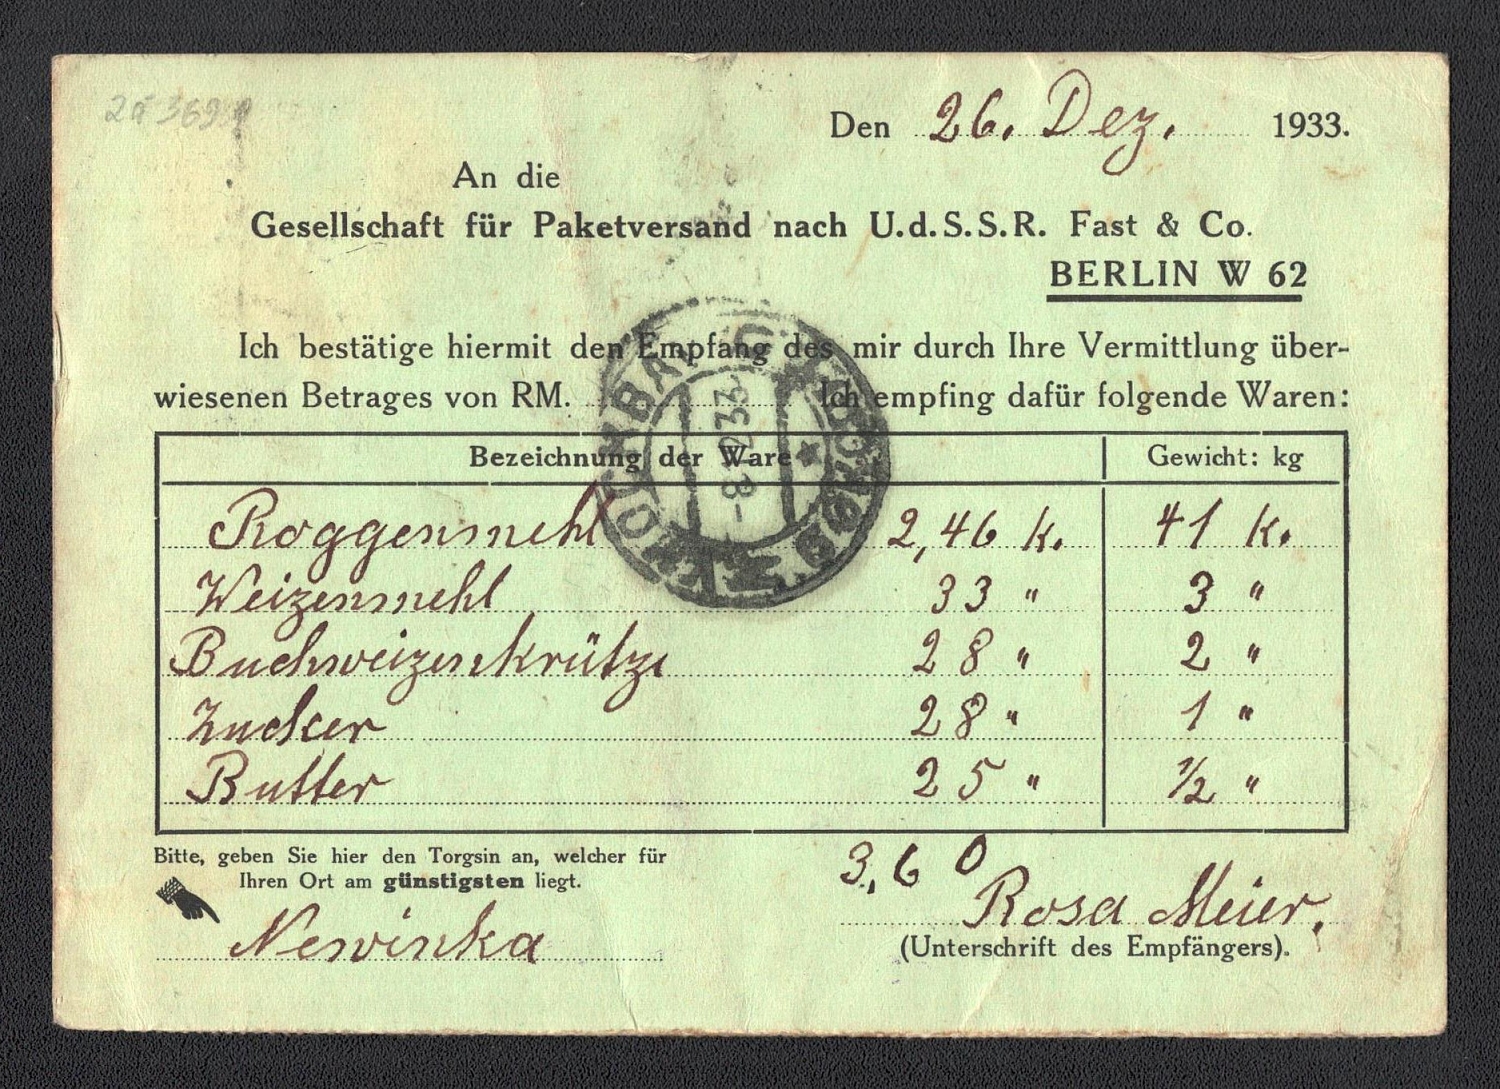 Den 26. Dez. 1933.
An die
Gesellschaft für Paketversand nach U.d.S.S.R. Fast & Co.
BERLIN W 62
Ich bestätige hiermit den Empfang des mir durch Ihre Vermittlung über-
wiesenen Betrages von RM. Ich empfing dafür folgende Waren:
Bezeichnung der Ware Gewicht: kg
Roggenmehl 2,46 k. 41 k.
Weizenmehl 33 " 3 "
Buchweizenkrütze 28 " 2 "
Zucker 28 " 1 "
Butter 25 " 1/2 "
Bitte, geben Sie hier den Torgsin an, welcher für
Ihren Ort am günstigsten liegt.
3,60
Newinka
Rosa Meier.
(Unterschrift des Empfängers).